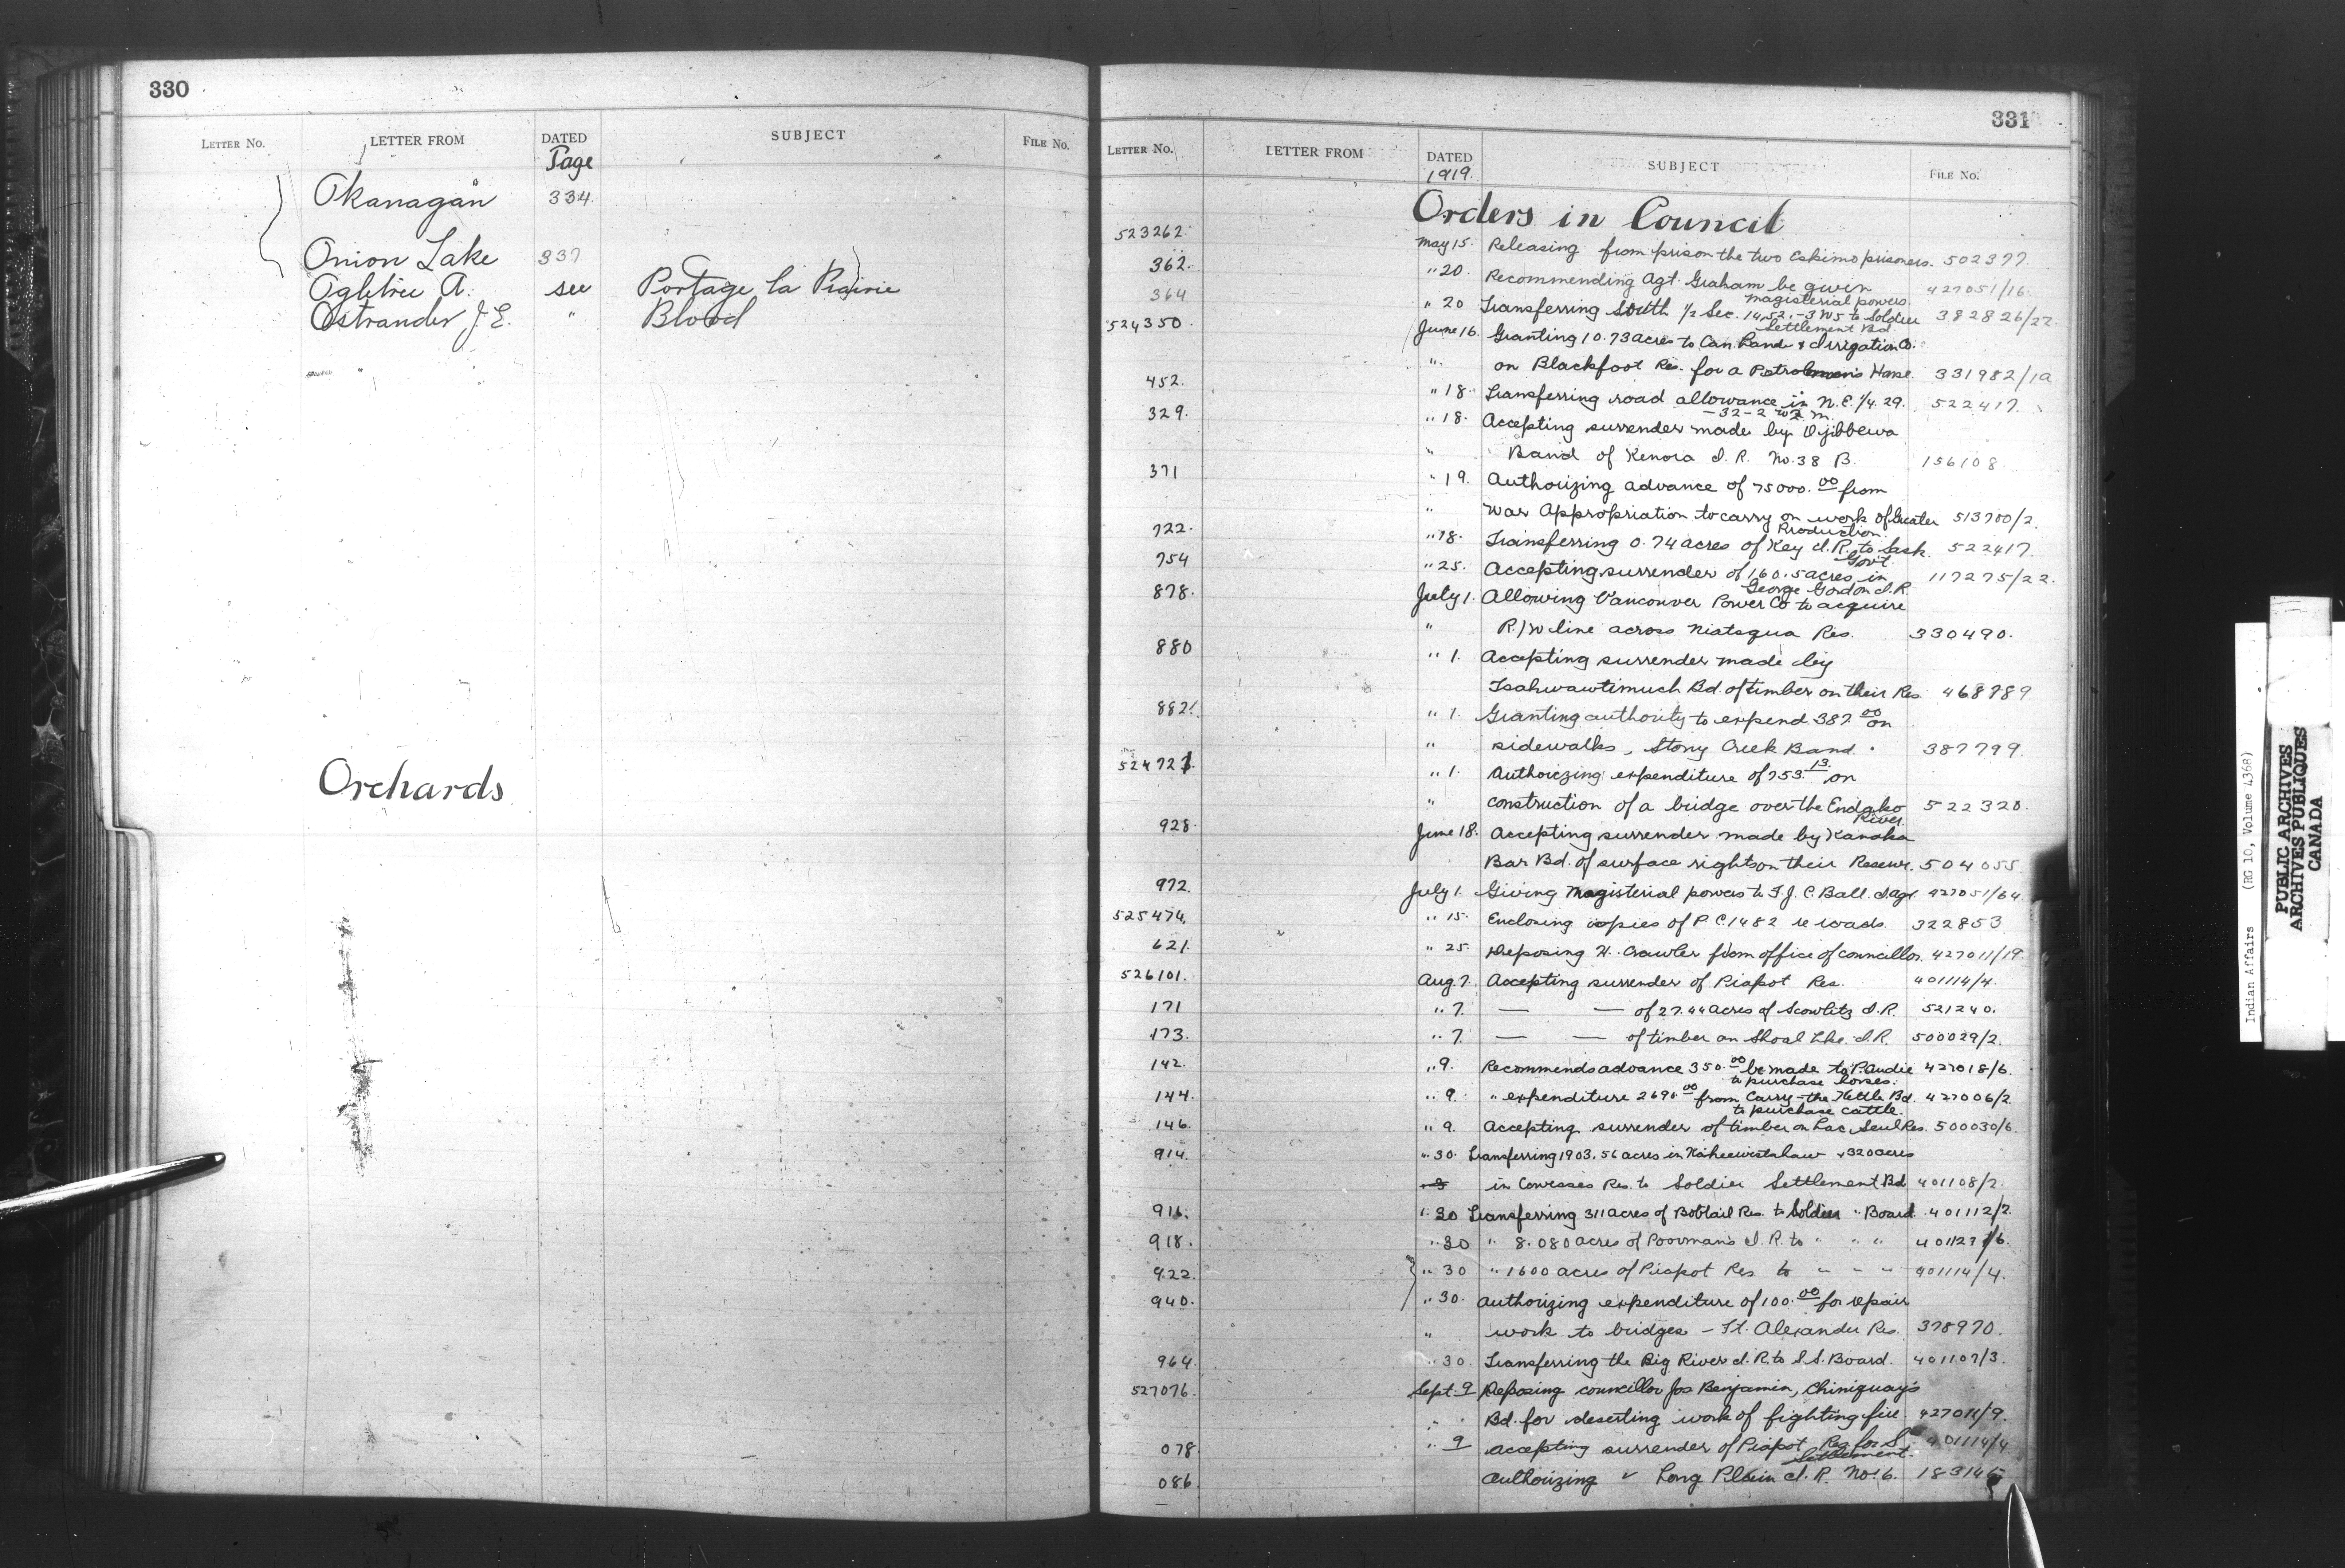 330
LETTER No. LETTER FROM DATED SUBJECT FILE No.
Page
Okanagan 334
Onion Lake 337
Ogletree A. see Portage la Prairie
Ostrander J. E. " Blood
Orchards
331
LETTER No. LETTER FROM DATED SUBJECT FILE No.
1919.
Orders in Council
523262. May 15. Releasing from prison the two Eskimo prisoners. 502377.
362. " 20. Recommending Agt. Graham be given 427051/16.
magisterial powers.
364 " 20 Transferring South 1/2 Sec. 14, 52, -3 W5 to Soldier 382826/22.
Settlement Bd.
524350. June 16. Granting 10.73 acres to Can. Land & Irrigation Co.
" on Blackfoot Res. for a Patrolmen's House. 331982/1a
452. " 18. Transferring road allowance in N.E. 1/4. 29. 522417.
-32-2 W2 M.
329. " 18. Accepting surrender made by Ojibbewa
" Band of Kenora I. R. No. 38 B. 156108.
371 " 19. Authorizing advance of 75000.00 from
" War Appropriation to carry on work of Greater 513700/2.
Production.
722. " 18. Transferring 0.74 acres of Key I. R. to Sask. 522417.
Govt.
754 " 25. Accepting surrender of 160.5 acres in 117275/22.
George Gordon I. R.
878. July 1. Allowing Vancouver Power Co to acquire
" R/W line across Niatsqua Res. 330490.
880 " 1. Accepting surrender made by
Tsahwawtimuch Bd. of timber on their Res. 468789
882. " 1. Granting authority to expend 387.00 on
" sidewalks, Stony Creek Band. 387799.
524721. " 1. Authorizing expenditure of 753.13 on
" construction of a bridge over the Endako 522320.
River.
928. June 18. Accepting surrender made by Kanaka
Bar Bd. of surface rights on their Reserve. 504055.
972. July 1. Giving Magisterial powers to F. J. C. Ball. I. Agt. 427051/64
525474. " 15. Enclosing copies of P C. 1482 re roads. 322853
621. " 25. Deposing H. Crawler from office of councillor. 427011/19.
526101. Aug 7. Accepting surrender of Piapot Res. 401114/4.
171 " 7. — — of 27.44 acres of Scowlitz I. R. 521240.
173. " 7. — — of timber on Shoal Lke. I. R. 500029/2.
142. " 9. Recommends advance 350.00 be made to P. Audie 427018/6.
to purchase horses.
144. " 9. " expenditure 2690.00 from Carry-the-Kettle Bd. 427006/2
to purchase cattle.
146. " 9. Accepting surrender of timber on Lac Seul Res. 500030/6.
914. " 30. Transferring 1903.56 acres in Kaheewistahaw & 320 acres
in Cowesses Res. to Soldier Settlement Bd 401108/2.
916. " 30 Transferring 311 acres of Bobtail Res. to Soldier " Board. 401112/2
918. " 30 " 8.080 acres of Poorman's I. R. to " " " 401127/6.
922. " 30 " 1600 acres of Piapot Res. to " " " 401114/4.
940. " 30. Authorizing expenditure of 100.00 for repair
" work to bridges - Ft. Alexander Res. 378970.
964. " 30. Transferring the Big River I. R. to S. S. Board. 401107/3.
527076. Sept. 9 Deposing councillor Jos Benjamin, Chiniquay's
" " Bd. for deserting work of fighting fire. 427011/9.
078 " 9 Accepting surrender of Piapot Res for S. 401114/4
Settlement.
086 Authorizing " Long Plain I. R. No 6. 183145
Indian Affairs (RG 10, Volume 4368)
PUBLIC ARCHIVES
ARCHIVES PUBLIQUES
CANADA